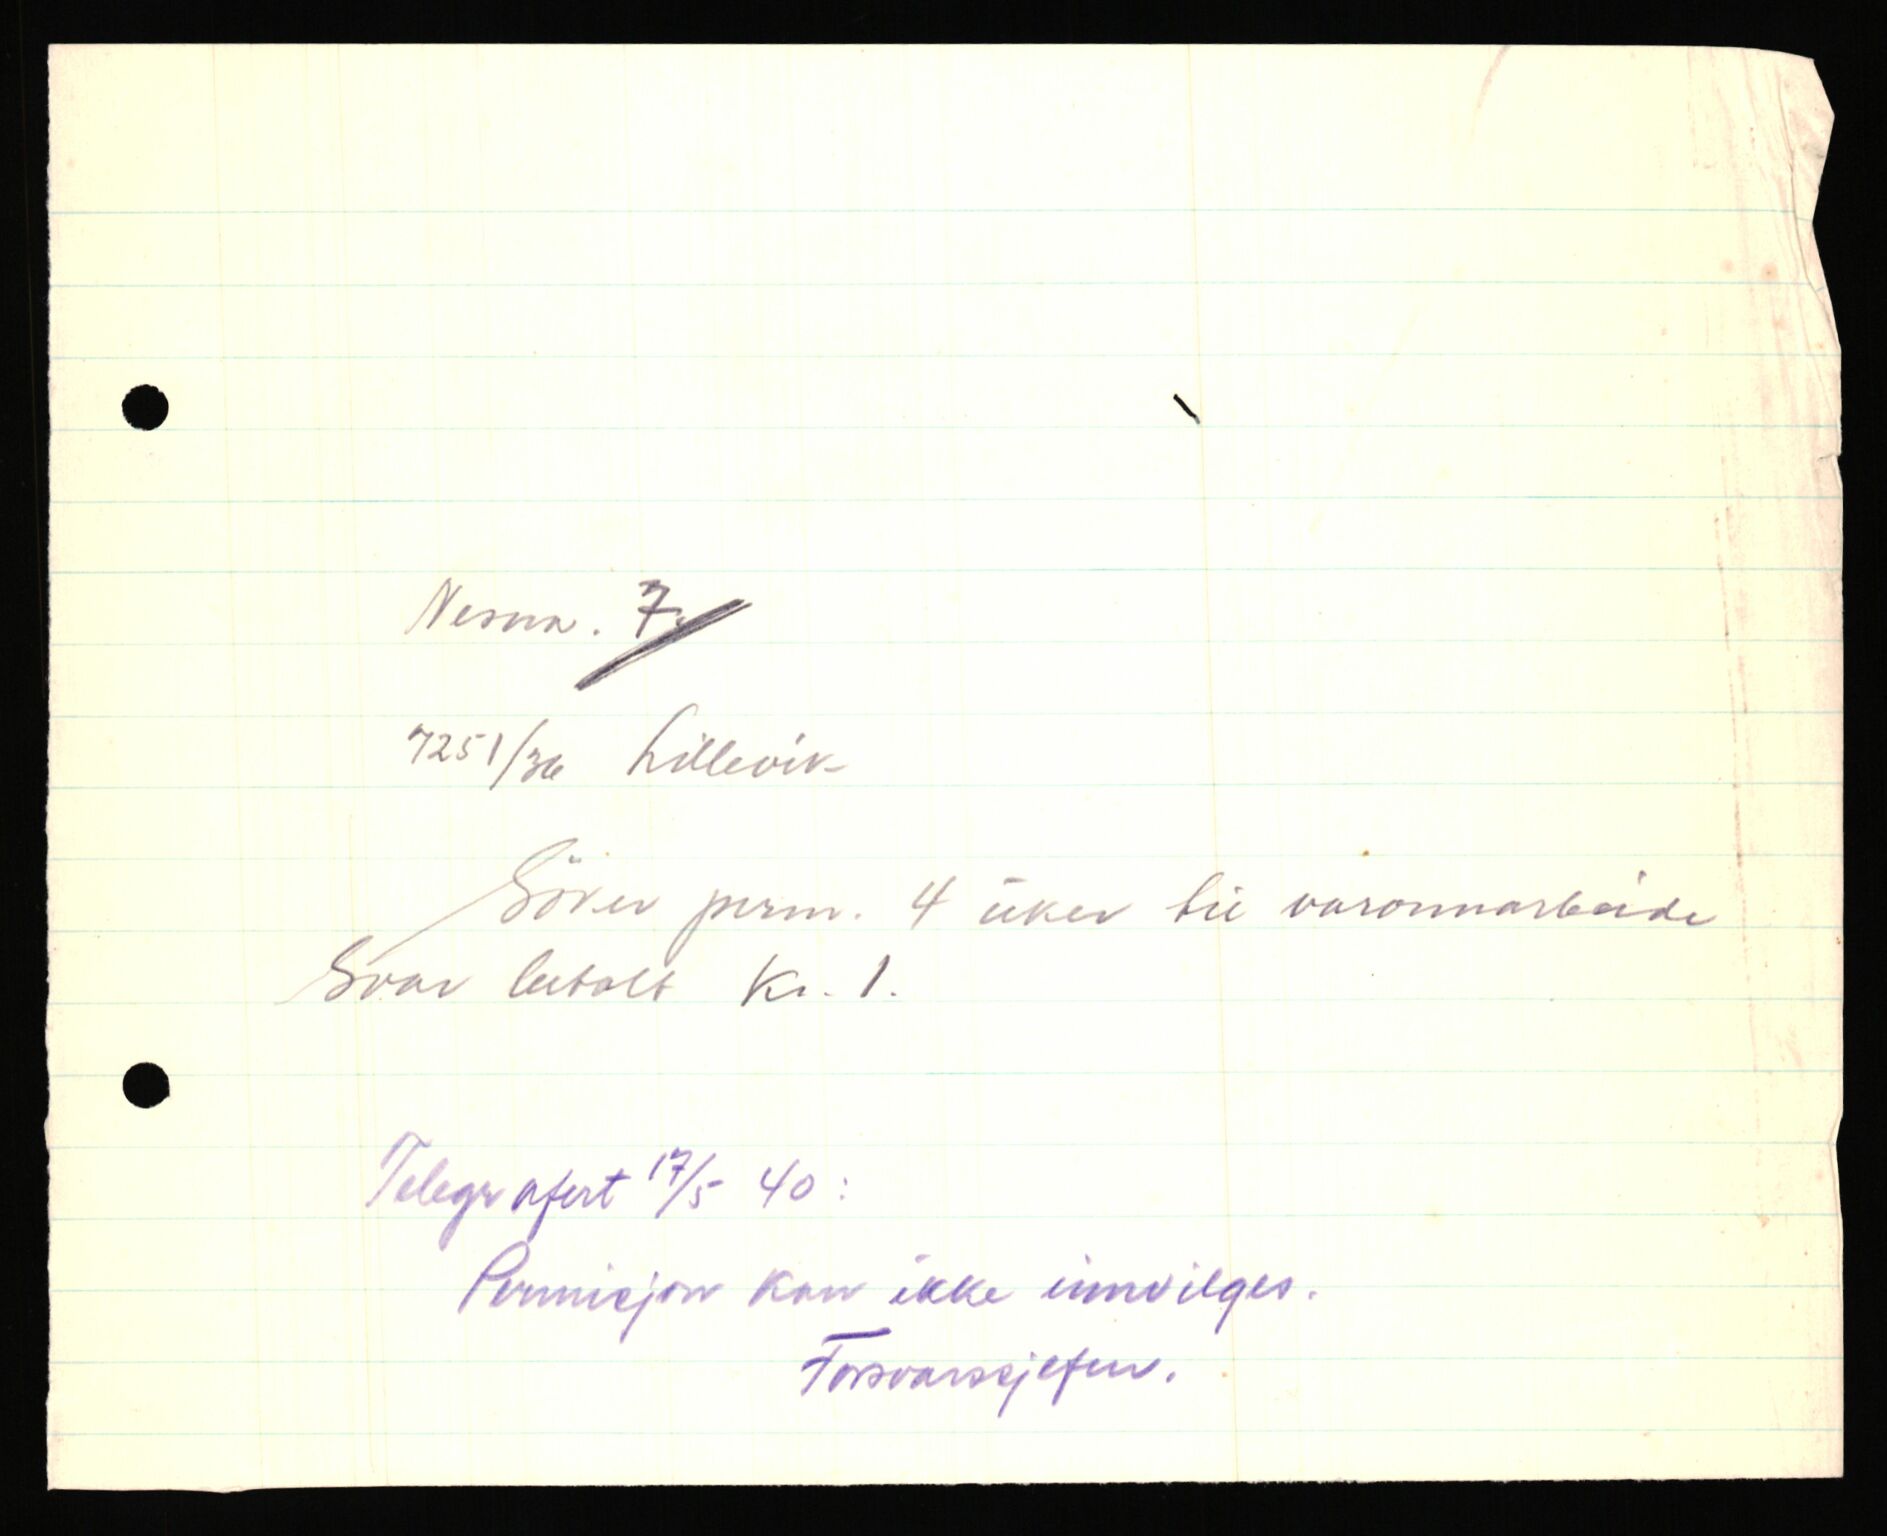 Nesna. 7.
7251/36 Lillevik
Söker perm. 4 uker til våronnarbeide
Svar betalt Kr. 1.
Telegrafert 17/5 40:
Permisjon kan ikke innvilges.
Forsvarssjefen.